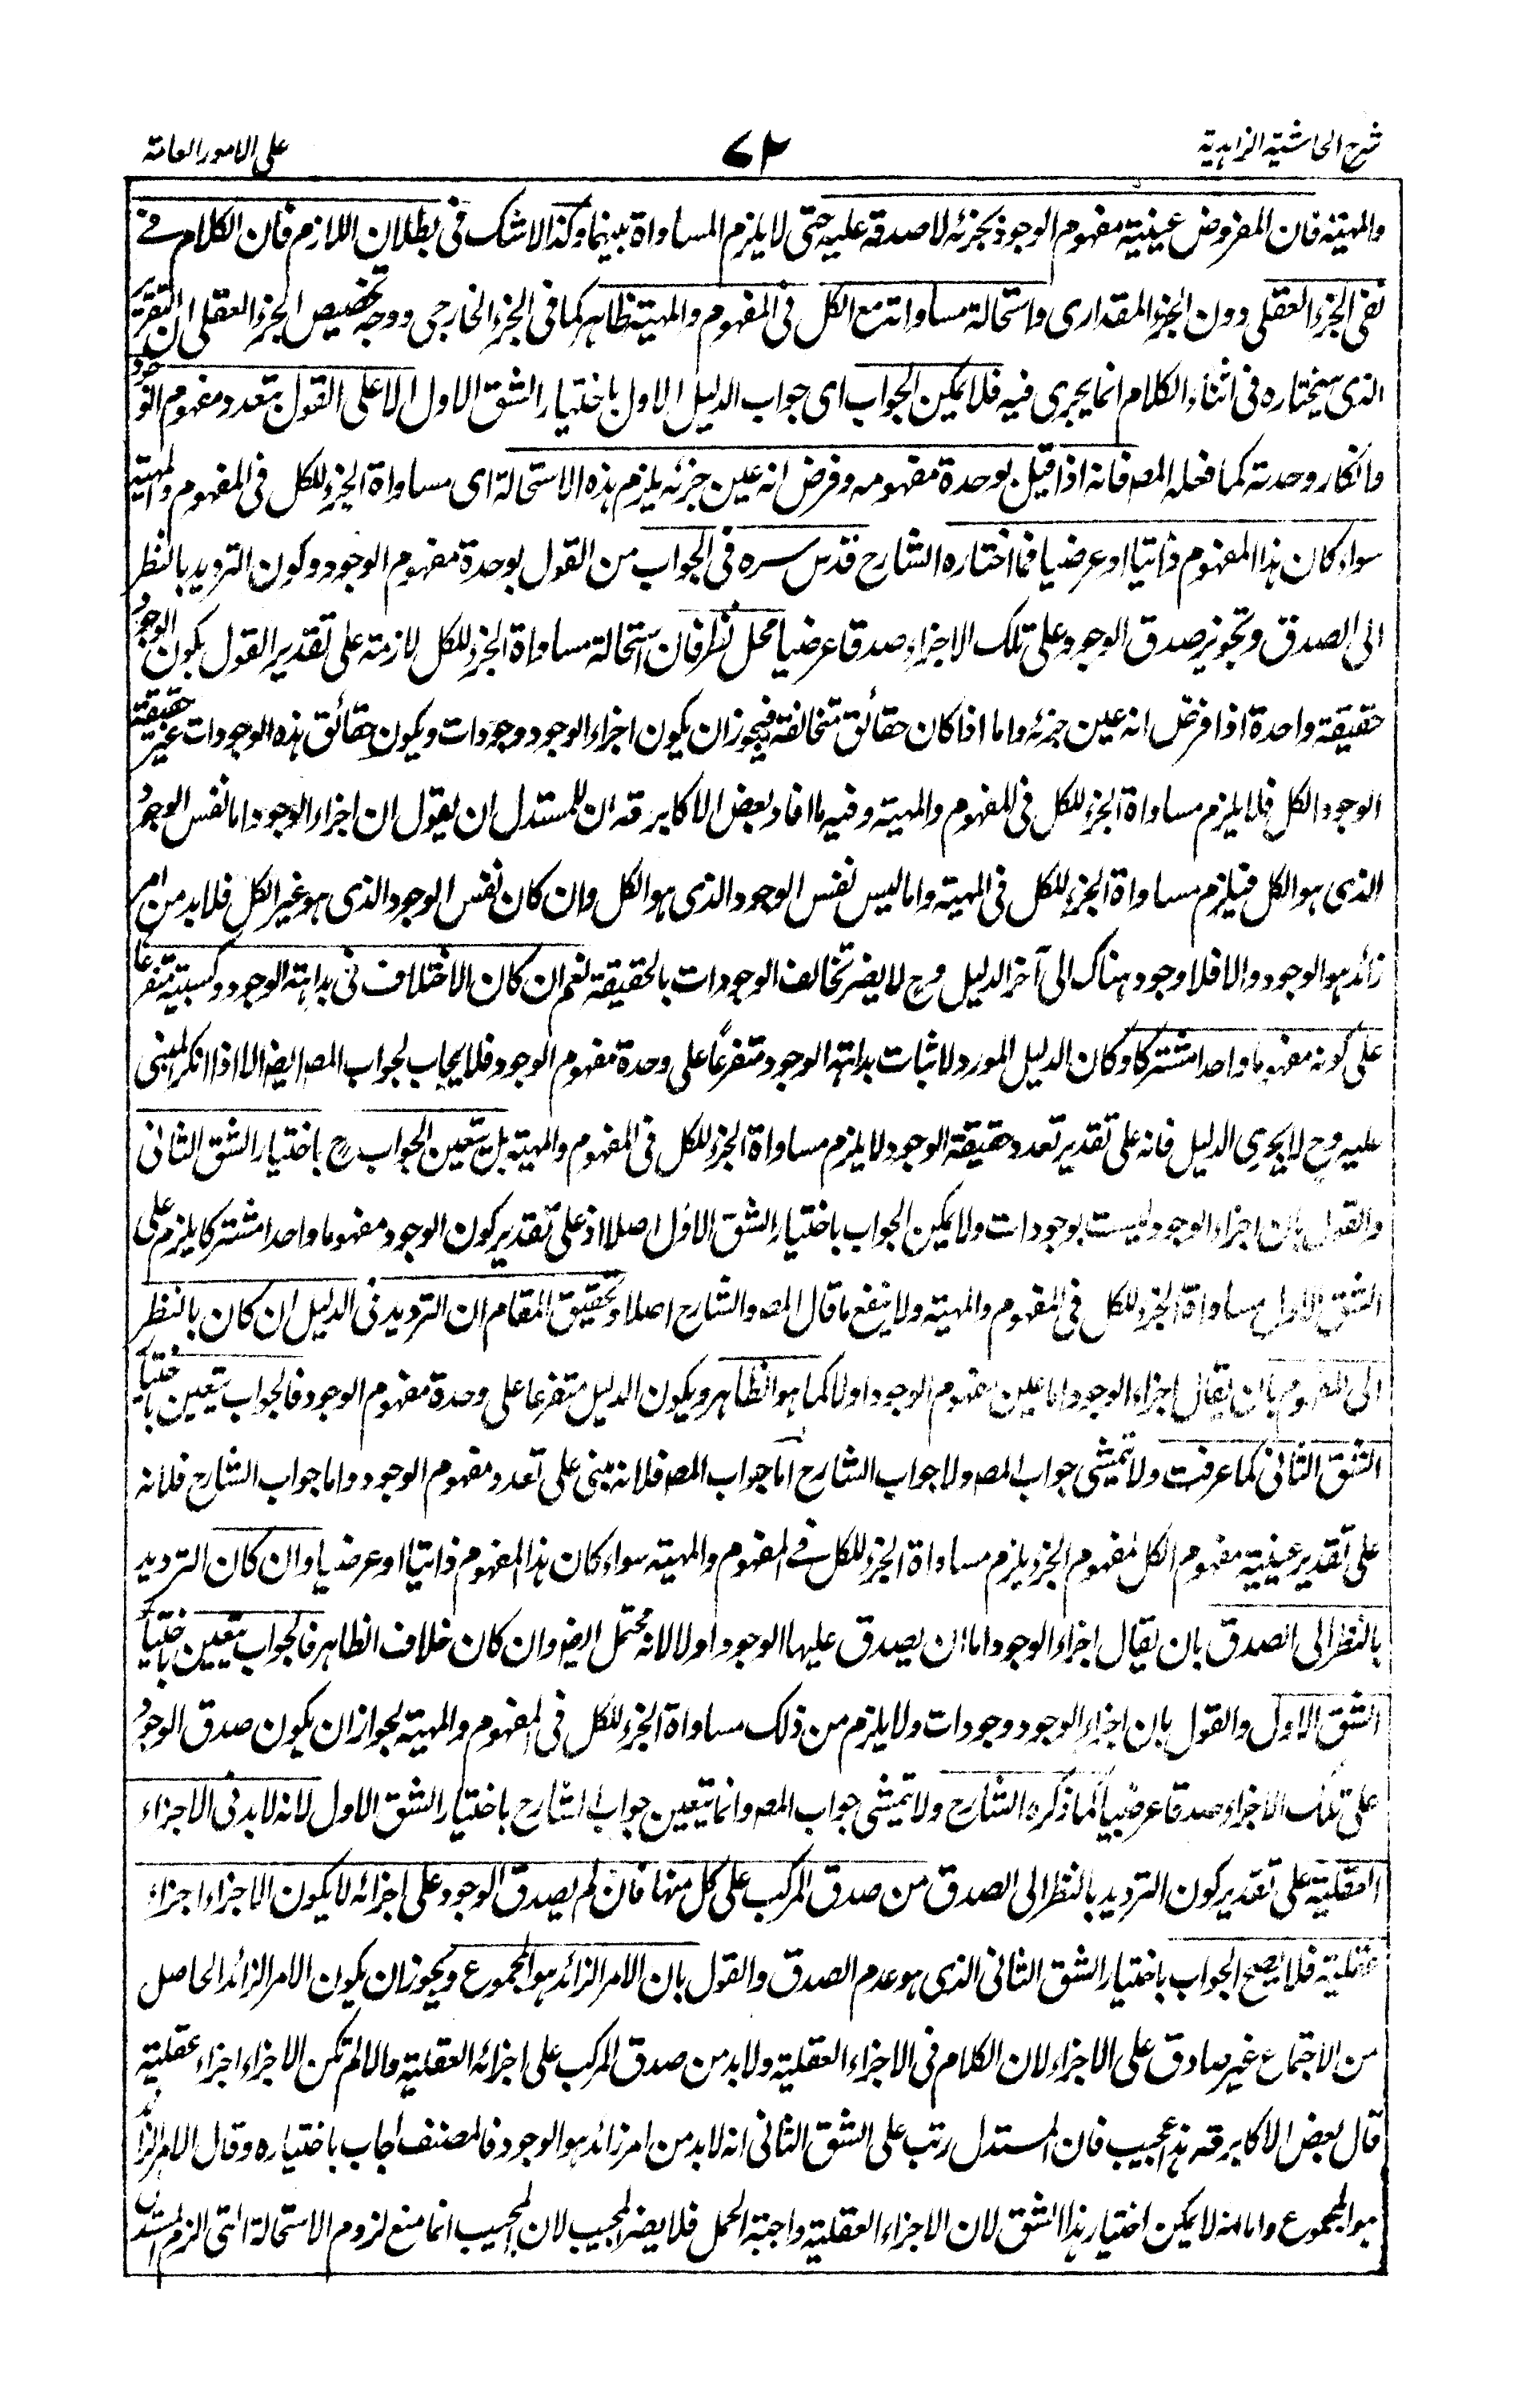 شرح الحاشية الزاهدية
٧٢
على الامور العامة
والمهية فان المفروض عينية مفهوم الوجود لجزئه لا صدقه عليه حتى لا يلزم المساواة بينهما وكذا لا شك فى بطلان اللازم فان الكلام فے
نفى الجزء العقلى دون الجزء المقدارى واستحالة مساواته مع الكل فى المفهوم والمهية ظاهر كما فى الجزء الخارجى ووجه تخصيص الجزء العقلى ان التقرير
الذى سيختاره فى اثناء الكلام انما يجرى فيه فلا يمكن الجواب اى جواب الدليل الاول باختيار الشق الاول الا على القول بتعدد مفهوم الوجود
وانكار وحدته كما فعله المص فانه اذا قيل بوحدة مفهومه وفرض انه عين جزئه يلزم هذه الاستحالة اى مساواة الجزء للكل فى المفهوم والمهية
سواء كان هذا المفهوم ذاتيا او عرضيا فما اختاره الشارح قدس سره فى الجواب من القول بوحدة مفهوم الوجود وكون الترديد بالنظر
الى الصدق وتجويز صدق الوجود على تلك الاجزاء صدقا عرضيا محل نظر فان استحالة مساواة الجزء للكل لازمة على تقدير القول بكون الوجود
حقيقة واحدة اذا فرض انه عين جزئه واما اذا كان حقائق متخالفة فيجوز ان يكون اجزاء الوجود وجودات ويكون حقائق هذه الوجودات غير حقيقة
الوجود الكل فلا يلزم مساواة الجزء للكل فى المفهوم والمهية وفيه ما افاد بعض الاكابر قه ان للمستدل ان يقول ان اجزاء الوجود اما نفس الوجود
الذى هو الكل فيلزم مساواة الجزء للكل فى المهية واما ليس نفس الوجود الذى هو الكل وان كان نفس الوجود الذى هو غير الكل فلا بد من امر
زائد هو الوجود والا فلا وجود هناك الى آخر الدليل وح لا يضر تخالف الوجودات بالحقيقة نعم ان كان الاختلاف فى بداهة الوجود وكسبيته متفرعا
على كونه مفهوما واحدا مشتركا وكان الدليل المورد لاثبات بداهة الوجود متفرعًا على وحدة مفهوم الوجود فلا يجاب بجواب المص ايضا الا اذا انكر المبنى
عليه وح لا يجرى الدليل فانه على تقدير تعدد حقيقة الوجود لا يلزم مساواة الجزء للكل فى المفهوم والمهية بل يتعين الجواب ح باختيار الشق الثانى
والقول بان اجزاء الوجود ليست بوجودات ولا يمكن الجواب باختيار الشق الاول اصلا اذ على تقدير كون الوجود مفهوما واحدا مشتركا يلزم على
الشق الاول مساواة الجزء للكل فى المفهوم والمهية ولا ينفع ما قال المص والشارح اصلا وتحقيق المقام ان الترديد فى الدليل ان كان بالنظر
الى المفهوم بان يقال اجزاء الوجود اما عين مفهوم الوجود او لا كما هو الظاهر ويكون الدليل متفرعا على وحدة مفهوم الوجود فالجواب يتعين باختيار
الشق الثانى كما عرفت ولا يتمشى جواب المص ولا جواب الشارح اما جواب المص فلانه مبنى على تعدد مفهوم الوجود واما جواب الشارح فلانه
على تقدير عينية مفهوم الكل لمفهوم الجزء يلزم مساواة الجزء للكل فے المفهوم والمهية سواء كان هذا المفهوم ذاتيا او عرضيا وان كان الترديد
بالنظر الى الصدق بان يقال اجزاء الوجود اما ان يصدق عليها الوجود او لا لانه محتمل ايضا وان كان خلاف الظاهر فالجواب يتعين باختيار
الشق الاول والقول بان اجزاء الوجود وجودات ولا يلزم من ذلك مساواة الجزء للكل فى المفهوم والمهية لجواز ان يكون صدق الوجود
على تلك الاجزاء صدقا عرضيا كما ذكره الشارح ولا يتمشى جواب المص وانما يتعين جواب الشارح باختيار الشق الاول لانه لا بد فى الاجزاء
العقلية على تقدير كون الترديد بالنظر الى الصدق من صدق المركب على كل منها فان لم يصدق الوجود على اجزائه لا يكون الاجزاء اجزاء
عقلية فلا يصح الجواب باختيار الشق الثانى الذى هو عدم الصدق والقول بان الامر الزائد هو المجموع ويجوز ان يكون الامر الزائد الحاصل
من الاجتماع غير صادق على الاجزاء لان الكلام فى الاجزاء العقلية ولا بد من صدق المركب على اجزائه العقلية والا لم تكن الاجزاء اجزاء عقلية
قال بعض الاكابر قه هذا عجيب فان المستدل رتب على الشق الثانى انه لا بد من امر زائد هو الوجود فالمصنف اجاب باختياره وقال الامر الزائد
هو المجموع واما انه لا يمكن اختيار هذا الشق لان الاجزاء العقلية واجبة الحمل فلا يضر المجيب لان المجيب انما منع لزوم الاستحالة التى الزم المستدل